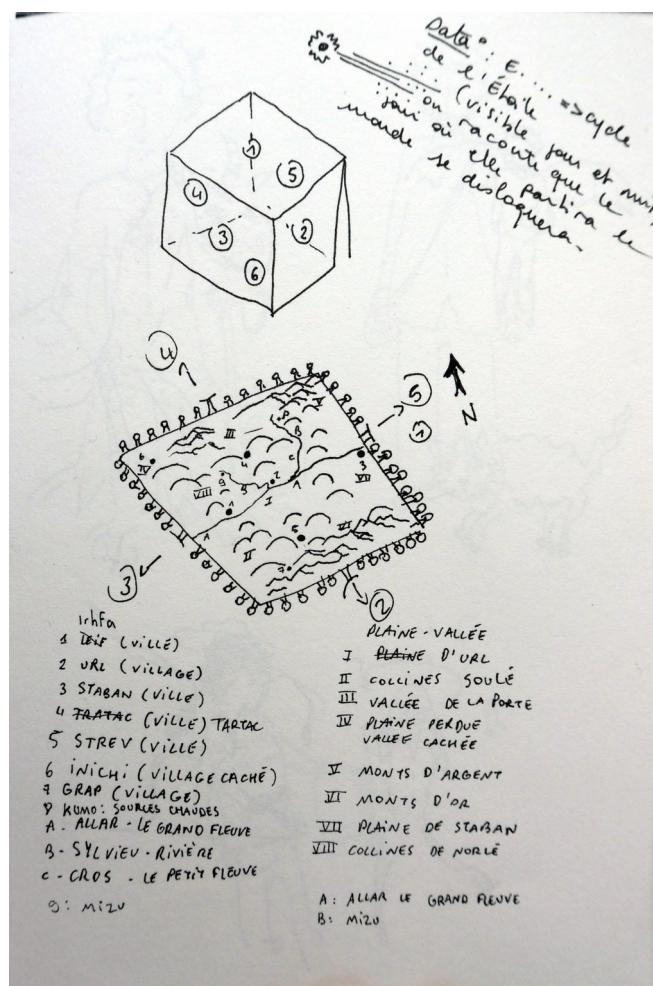 Data : E..... => cycle
de l'Étoile
(visible jour et nuit,
on raconte que le
jour où elle partira le
monde se disloquera.
1
5
4
3
2
6
4
5
1
N
3
2
6
IV
III
V
8
B
4
C
9
VIII
2
A
3
VII
1
I
A
5
VI
II
7
Irhfa
1 (VILLE)
2 URL (VILLAGE)
3 STABAN (VILLE)
4 TRATAC (VILLE) TARTAC
5 STREV (VILLE)
6 INICHI (VILLAGE CACHÉ)
7 GRAP (VILLAGE)
8 KUMO: SOURCES CHAUDES
A. ALLAR - LE GRAND FLEUVE
B - SYLVIEU - RIVIÈRE
C - CROS - LE PETIT FLEUVE
9: MIZU
PLAINE-VALLÉE
I PLAINE D'URL
II COLLINES SOULÉ
III VALLÉE DE LA PORTE
IV PLAINE PERDUE
VALLÉE CACHÉE
V MONTS D'ARGENT
VI MONTS D'OR
VII PLAINE DE STABAN
VIII COLLINES DE NORLÉ
A: ALLAR LE GRAND FLEUVE
B: MIZU